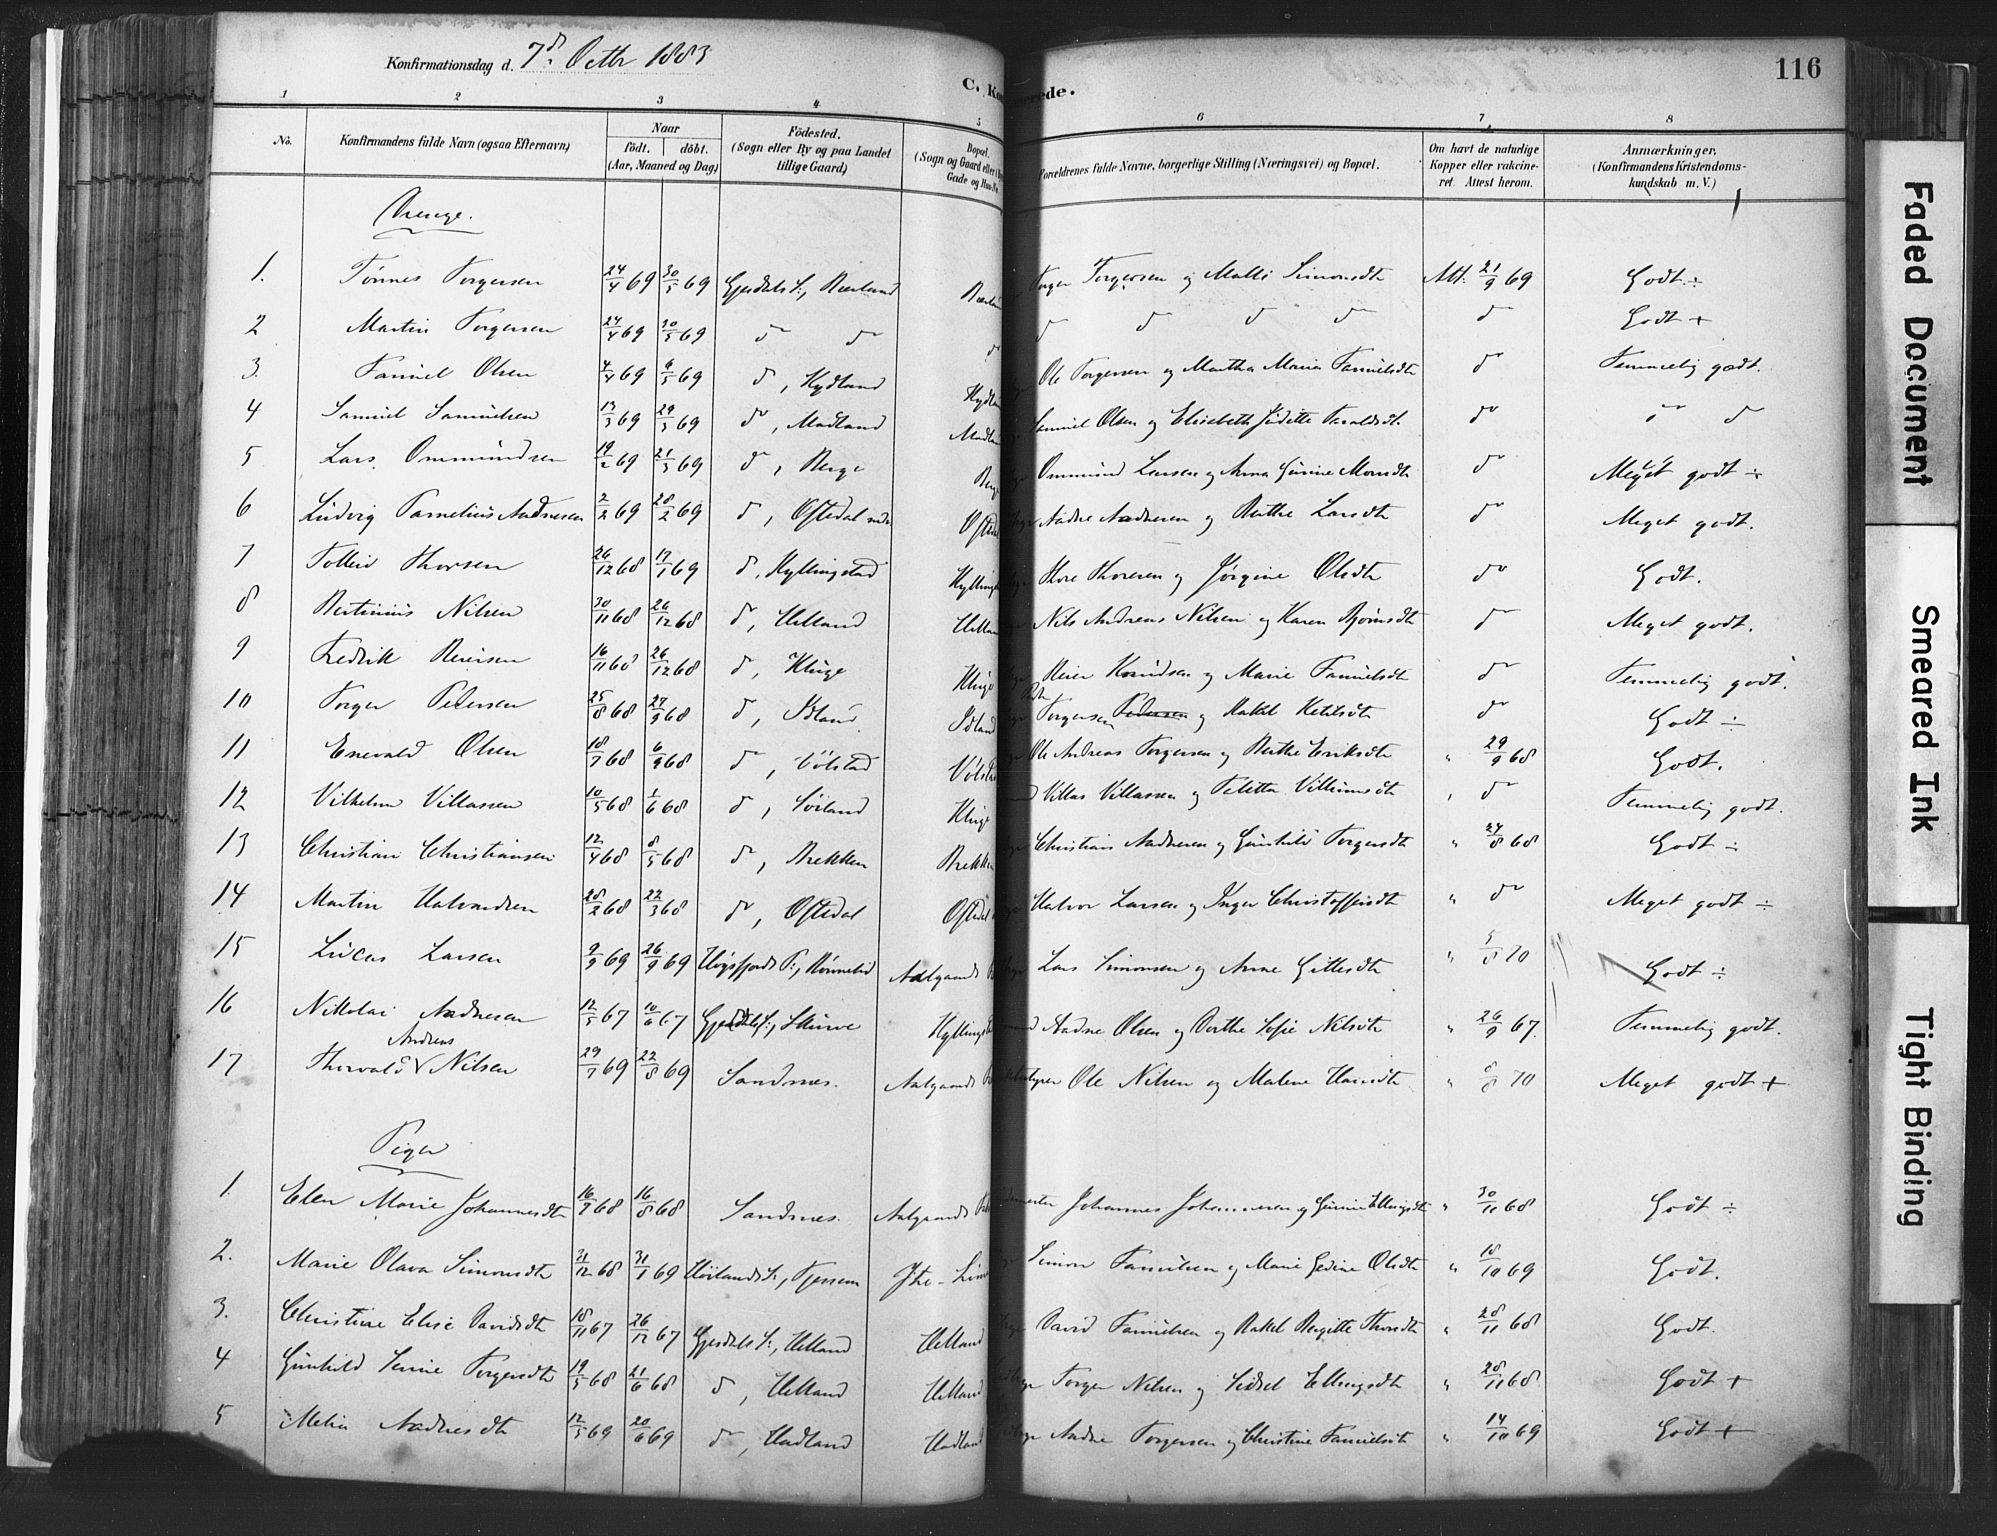 Konfirmationsdag d. 7d. Octbr 1883
116
C. Ko erede.
1 2 3 4 5 6 7 8
No. Konfirmandens fulde Navn (ogsaa Efternavn) Naar födt. döbt. (Aar, Maaned og Dag) Födested. (Sogn eller By og paa Landet tillige Gaard) Bopæl. (Sogn og Gaard eller Gade og Hus-No. Forældrenes fulde Navne, borgerlige Stilling (Næringsvei) og Bopæl. Om havt de naturlige Kopper eller vakcineret. Attest herom. Anmærkninger. (Konfirmandens Kristendomskundskab m. V.)
Drenge.
1. Tønnes Torgersen 24/4 69 30/5 69 Gjesdals S., Nærland Torger Torgersen og Malli Simonsdtr Att. 21/9 69 Godt ÷
2 Martin Torgersen 24/4 69 30/5 69 do do do do do do do Godt +
3. Tørris Olsen 4/4 69 6/5 69 do, Kydland Kydlan Ole Torgersen og Martha Maria Tønnesdtr do Temmelig godt.
4 Samuel Samuelsen 13/3 69 29/3 69 do, Madland Madlan Samuel Olsen og Elisabeth do do do
5 Lars Ommundsen 19/2 69 21/3 69 do, Berge Berge Ommund Larsen og Anna Gurine Monsdtr do Meget godt ÷
6 Ludvig Aadnesen 2/2 69 28/2 69 do, Oftedal Ofted Aadne Aadnesen og Berthe Larsdtr do Meget godt.
7 Tolleiv Thorsen 26/12 68 17/1 69 do, Kyllingstad Kyllings Thore Thoresen og Jørgine Olsdtr do Godt.
8 Bertinius Nilsen 30/11 68 26/12 68 do, Helland Hellan Nils Andreas Nilsen og Karen Bjørnsdtr do Meget godt.
9 Fredrik Reiersen 16/11 68 26/12 68 do, Kluge Kluge Reier Knudsen og Marie do Temmelig godt.
10 Torger Pedersen 25/8 68 27/9 68 do, Idland Idland Pder Torgersen Pedersen og Rakel Ketilsdtr do Godt ÷
11 Enevald Olsen 18/7 68 6/9 68 do, Vølstad Vølsta Ole Andreas Torgersen og Berthe Eriksdtr " 29/9 68 Godt.
12 Vilhelm Villassen 10/5 68 1/6 68 do, Søiland Kluge Villas Villassen og Teletta Villumsdtr " do Temmelig godt.
13 Christian Christiansen 12/4 68 8/5 68 do, Brekken Brekken Christian Aadnesen og Gunhild Torgersdtr " 24/8 68 Godt ÷
14 Martin Halvorsen 28/2 68 22/3 68 do, Oftedal Oftedal Halvor Larsen og Inger Christoffersdtr " do Meget godt ÷
15 Lucas Larsen 9/9 69 26/9 69 Høgsfjords P., Aalgaards Lars Simonsen og Anne Gittesdtr " 5/8 70 Godt ÷
16 Nikolai Aadnesen 12/5 67 10/6 67 Gjesdals S., Skurve Kyllings Aadne Olsen og Berthe Sofie Nilsdtr " 26/9 67. Temmelig godt.
Andreas
17 Thorvald V Nilsen 29/7 69 22/8 69 Sandnes. Aalgaards Ole Nilsen og Malene Hansdtr " 8/8 70 Meget godt +
Piger
1. Elen Marie Johannesdtr 16/7 68 16/8 68 Sandnes. Aalgaards Johannes Johannesen og Gurine Ellingsdtr " 30/11 68 Godt ÷
2. Marie Olava Simonsdtr 31/12 68 31/1 69 Høilands S., Fjessem Simon og Marie Gedine Olsdtr " 18/10 69 Godt.
3. Christine Elise Davidsdtr 18/11 67 26/12 67 Gjesdals S., Helland Helland David og Rakel Bergitte Thorsdtr " 28/11 68 Godt.
4 Gunhild Serine Torgersdtr 19/5 68 21/6 68 do, Helland Helland Torger Nilsen og Sidsel Ellingsdtr " 28/11 68 Godt +
5 Melin Aadnesdtr 12/5 69 20/6 69 do, Hadland Hadland Aadne Torgersen og Christine " 14/10 69 Godt +
Faded Document
Smeared Ink
Tight Binding